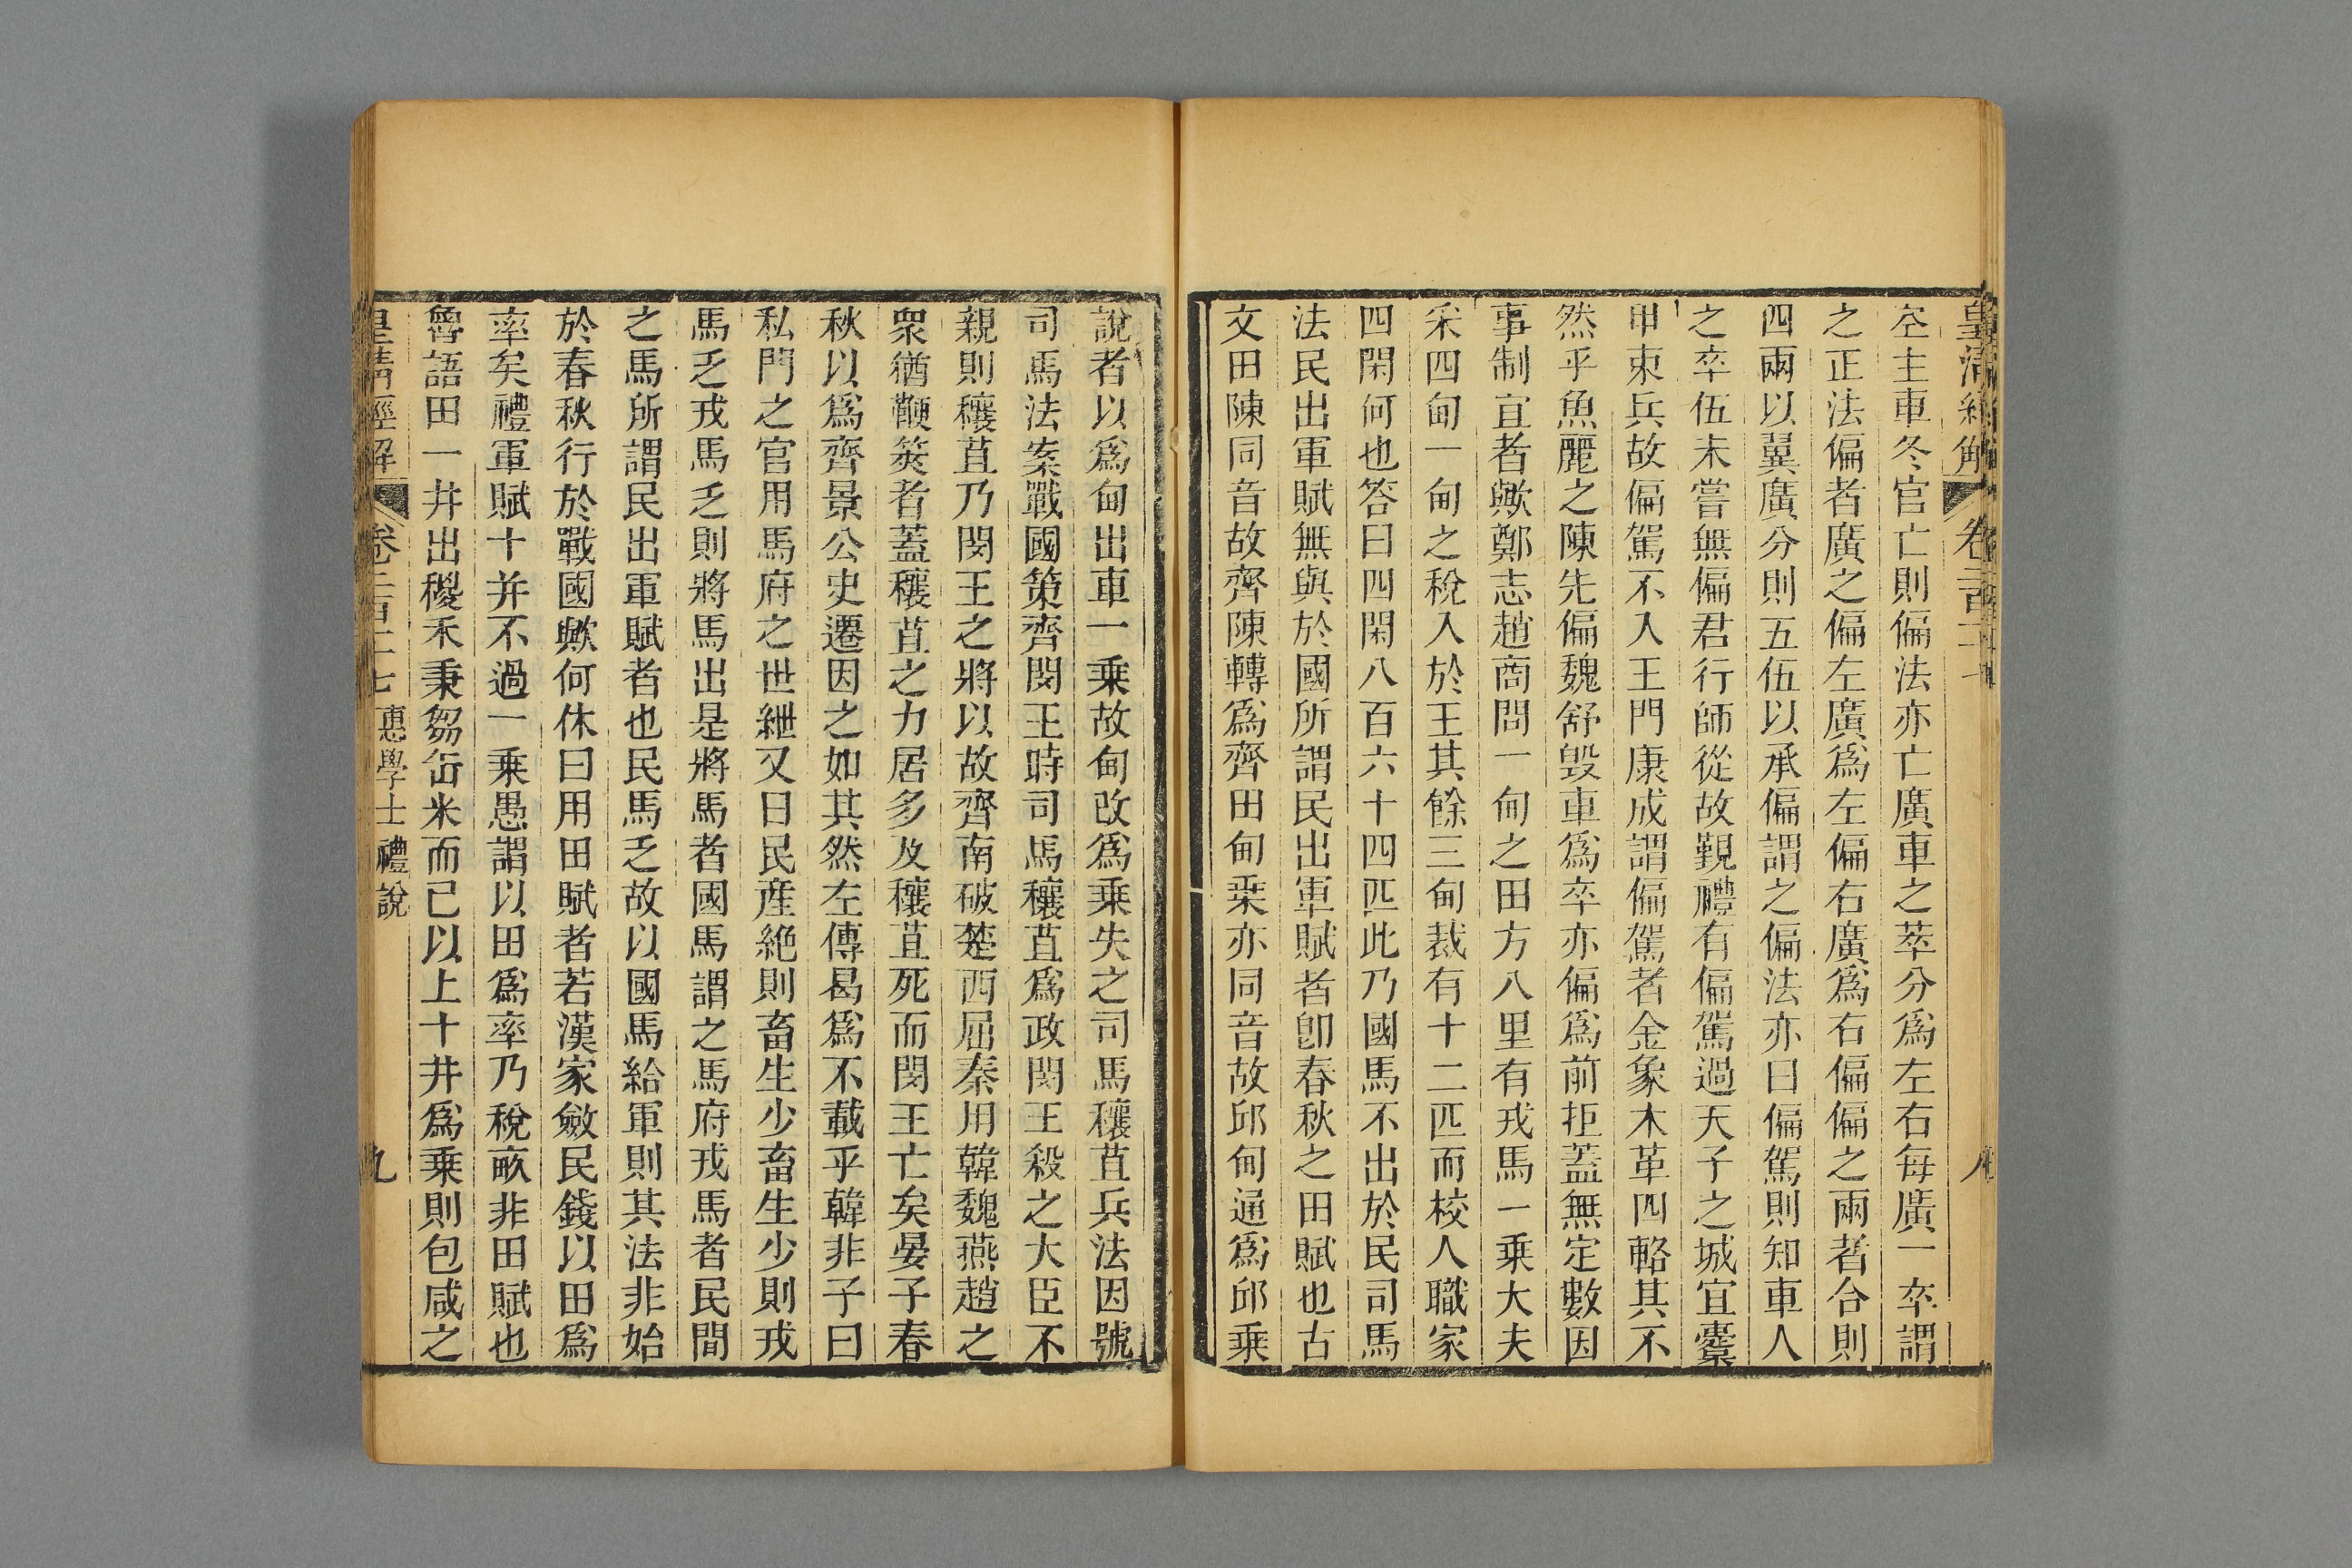 空主車冬官亡則偏法亦亡廣車之萃分爲左右每廣一卒謂
之正法偏者廣之偏左廣爲左偏右廣爲右偏偏之兩者合則
四兩以翼廣分則五伍以承偏謂之偏法亦曰偏駕則知車人
之卒伍未嘗無偏君行師從故覲禮有偏駕過天子之城宜櫜
甲束兵故偏駕不入王門康成謂偏駕者金象木革四輅其不
然乎魚麗之陳先偏魏舒毀車爲卒亦偏爲前拒蓋無定數因
事制宜者歟鄭志趙商問一甸之田方八里有戎馬一乘大夫
采四甸一甸之稅入於王其餘三甸裁有十二匹而校人職家
四閑何也答曰四閑八百六十四匹此乃國馬不出於民司馬
法民出軍賦無與於國所謂民出軍賦者卽春秋之田賦也古
文田陳同音故齊陳轉爲齊田甸乘亦同音故邱甸通爲邱乘
說者以爲甸出車一乘故甸改爲乘失之司馬穰苴兵法因號
司馬法案戰國策齊閔王時司馬穰苴爲政閔王殺之大臣不
親則穰苴乃閔王之將以故齊南破楚西屈秦用韓魏燕趙之
衆猶鞭筴者蓋穰苴之力居多及穰苴死而閔王亡矣晏子春
秋以爲齊景公史遷因之如其然左傳曷爲不載乎韓非子曰
私門之官用馬府之世絏又曰民産絶則畜生少畜生少則戎
馬乏戎馬乏則將馬出是將馬者國馬謂之馬府戎馬者民間
之馬所謂民出軍賦者也民馬乏故以國馬給軍則其法非始
於春秋行於戰國歟何休曰用田賦者若漢家斂民錢以田爲
率矣禮軍賦十井不過一乘愚謂以田爲率乃稅畝非田賦也
魯語田一井出稯禾秉芻缶米而已以上十井爲乘則包咸之
皇清經解 卷二百二十七 惠學士禮說 九